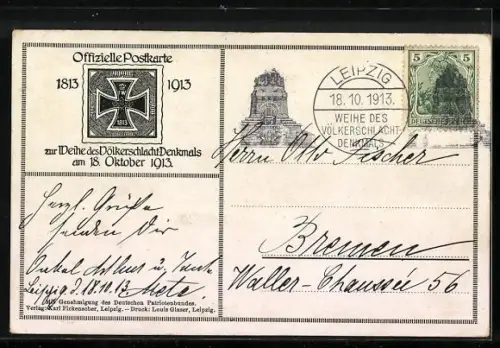 Offizielle Postkarte
1813 1913
1813
zur Weihe des Völkerschlacht Denkmals
am 18. Oktober 1913.
Herzl. Grüße
senden Dir
Onkel Arthur u. Tante
Leipzig d. 18.10.13. Meta.
Mit Genehmigung des Deutschen Patriotenbundes.
Verlag: Karl Fickenscher, Leipzig. – Druck: Louis Glaser, Leipzig.
LEIPZIG
18.10.1913.
WEIHE DES
VÖLKERSCHLACHT
DENKMALS
5 5
Herrn Otto Fischer
Bremen
Waller-Chaussée 56